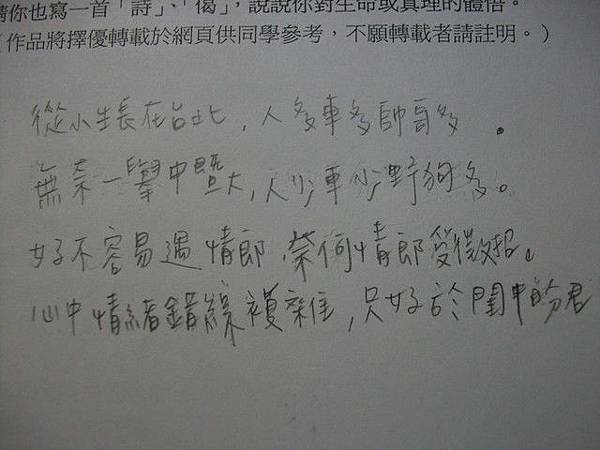 請你也寫一首「詩」、「偈」，說說你對生命或真理的體悟。
（作品將擇優轉載於網頁供同學參考，不願轉載者請註明。）
從小生長在台北，人多車多帥哥多。
無奈一舉中暨大，人少車少野狗多。
好不容易遇情郎，奈何情郎受徵招。
心中情緒錯綜複雜，只好於閨中盼君